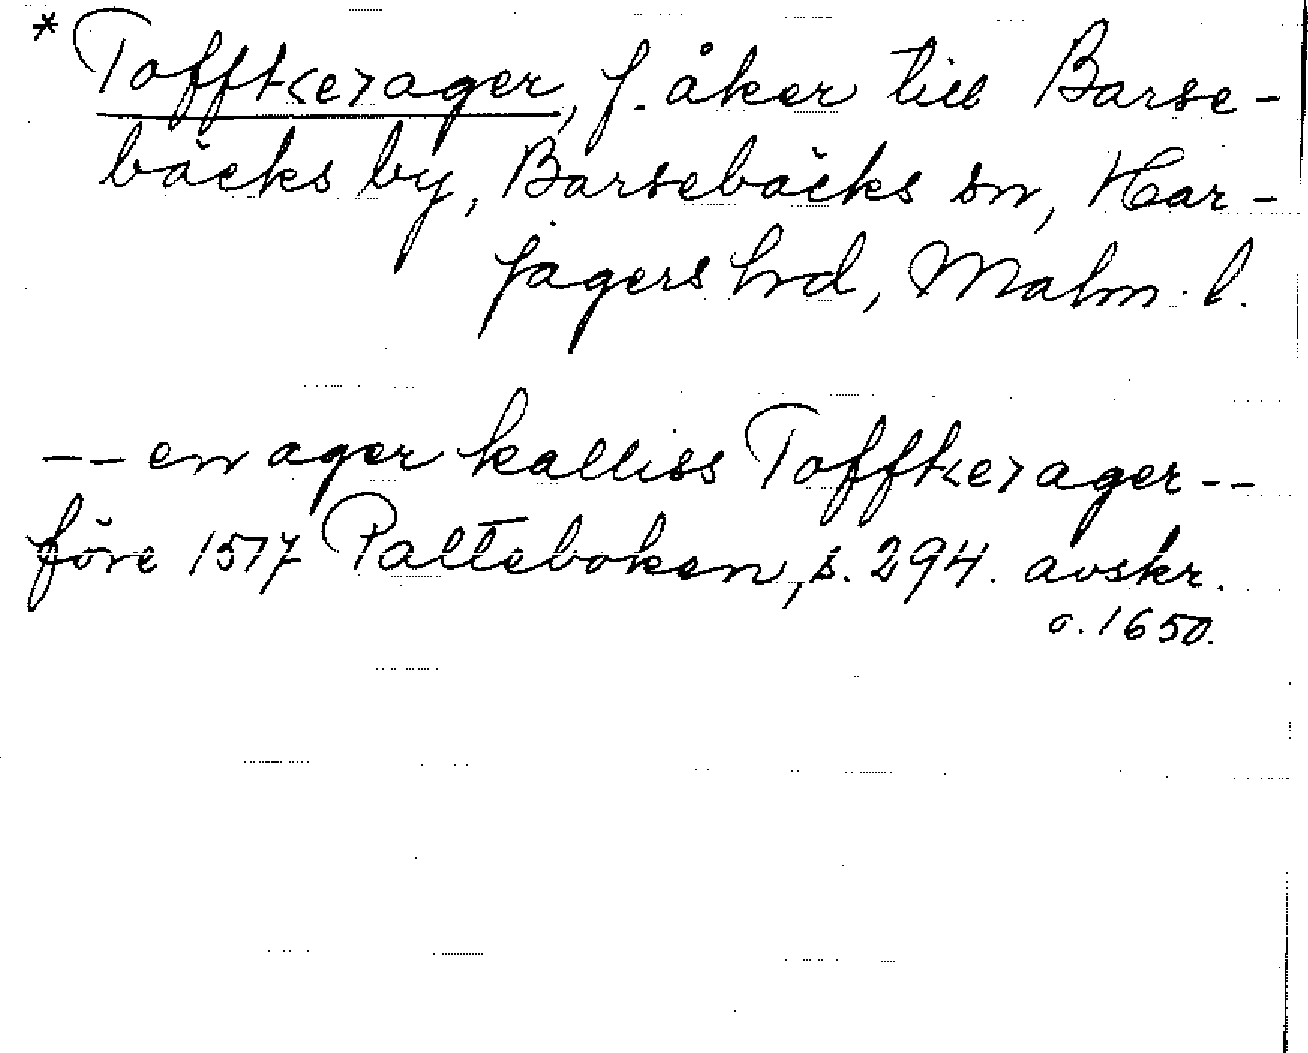 * Tofft<e>ager, f. åker till Barse-
bäcks by, Barsebäcks sn, Har-
jagers hrd, Malm. l.
-- en ager kalliss Tofft<e>ager --
före 1517 Palteboken, s. 294. avskr.
o. 1650.